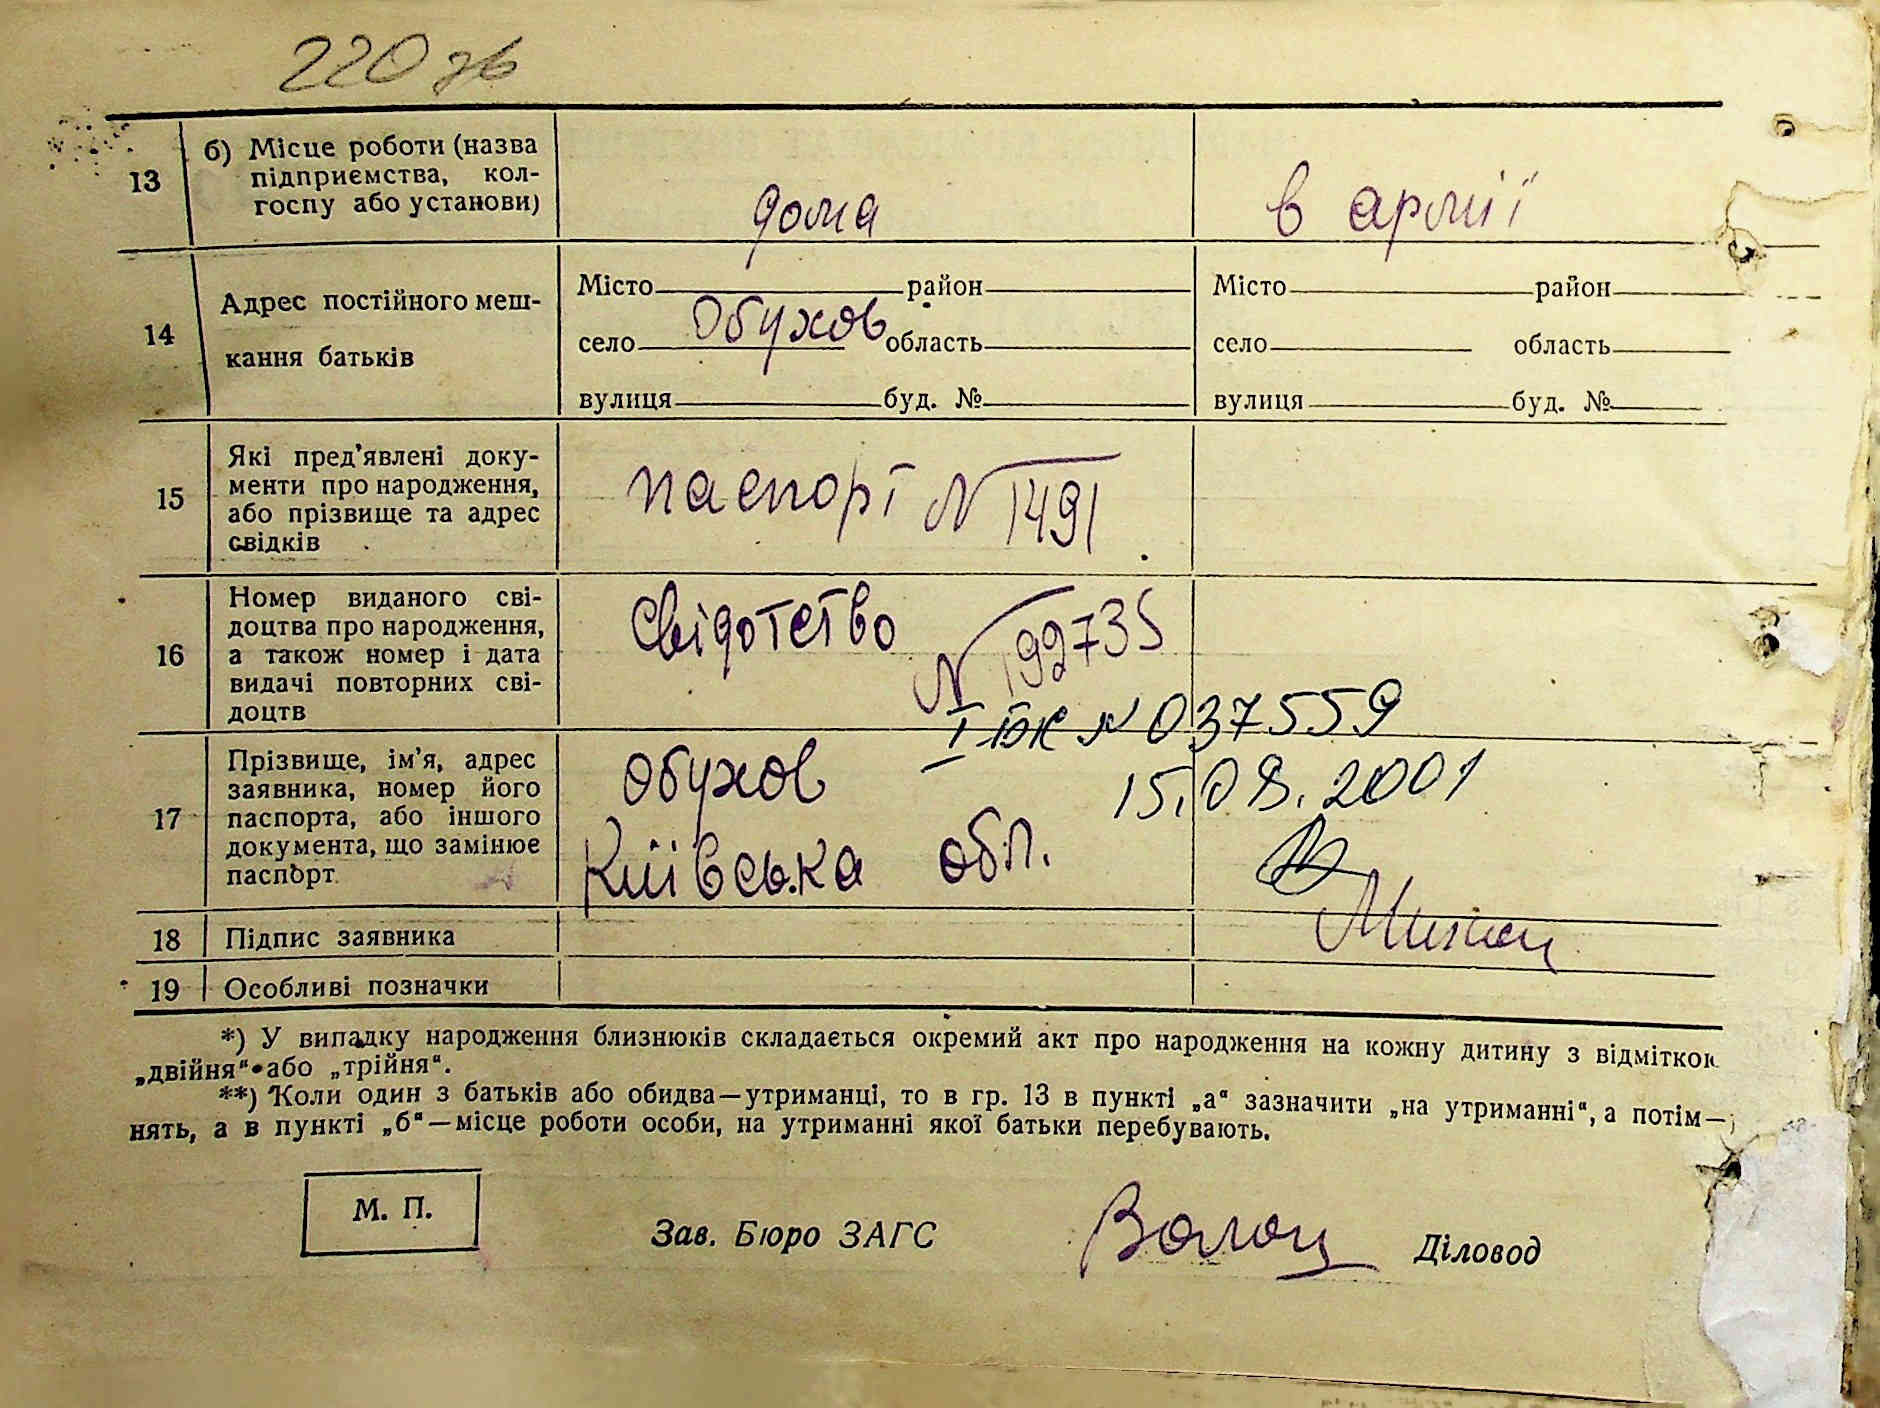 220 зв
13
б) Місце роботи (назва
підприємства, кол-
госпу або установи)
дома
в армії
14
Адрес постійного меш-
кання батьків
Місто район
село Обухов область
вулиця буд. №
Місто район
село область
вулиця буд. №
15
Які пред'явлені доку-
менти про народження,
або прізвище та адрес
свідків
паспорт N 1491
16
Номер виданого сві-
доцтва про народження,
а також номер і дата
видачі повторних сві-
доцтв
Свідотство
N 199735
N 037559
15.08.2001
17
Прізвище, ім'я, адрес
заявника, номер його
паспорта, або іншого
документа, що замінює
паспорт
Обухов
Київська обл.
18 Підпис заявника
19 Особливі позначки
*) У випадку народження близнюків складається окремий акт про народження на кожну дитину з відміткою
„двійня“ або „трійня“.
**) Коли один з батьків або обидва—утриманці, то в гр. 13 в пункті „а“ зазначити „на утриманні“, а потім—
нять, а в пункті „б“—місце роботи особи, на утриманні якої батьки перебувають.
М. П.
Зав. Бюро ЗАГС
Діловод